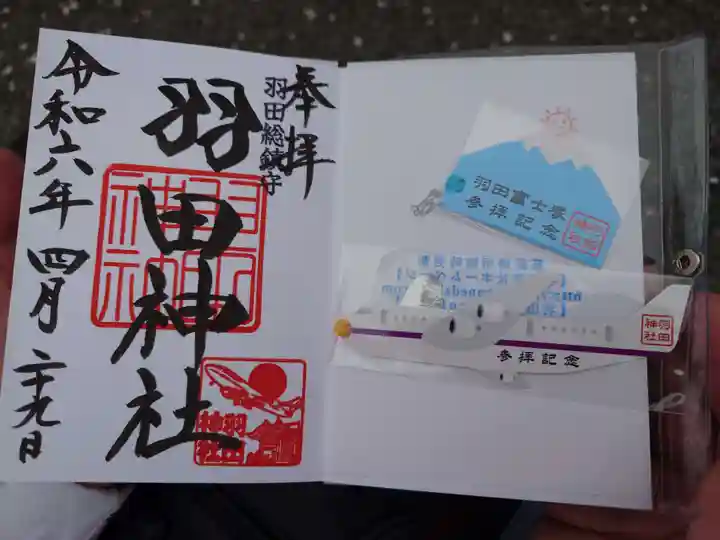 奉拝
羽田総鎮守
羽田神社
令和六年 四月 二十九日
羽田神社
羽田神社
羽田富士塚
参拝記念
羽田神社
参拝記念